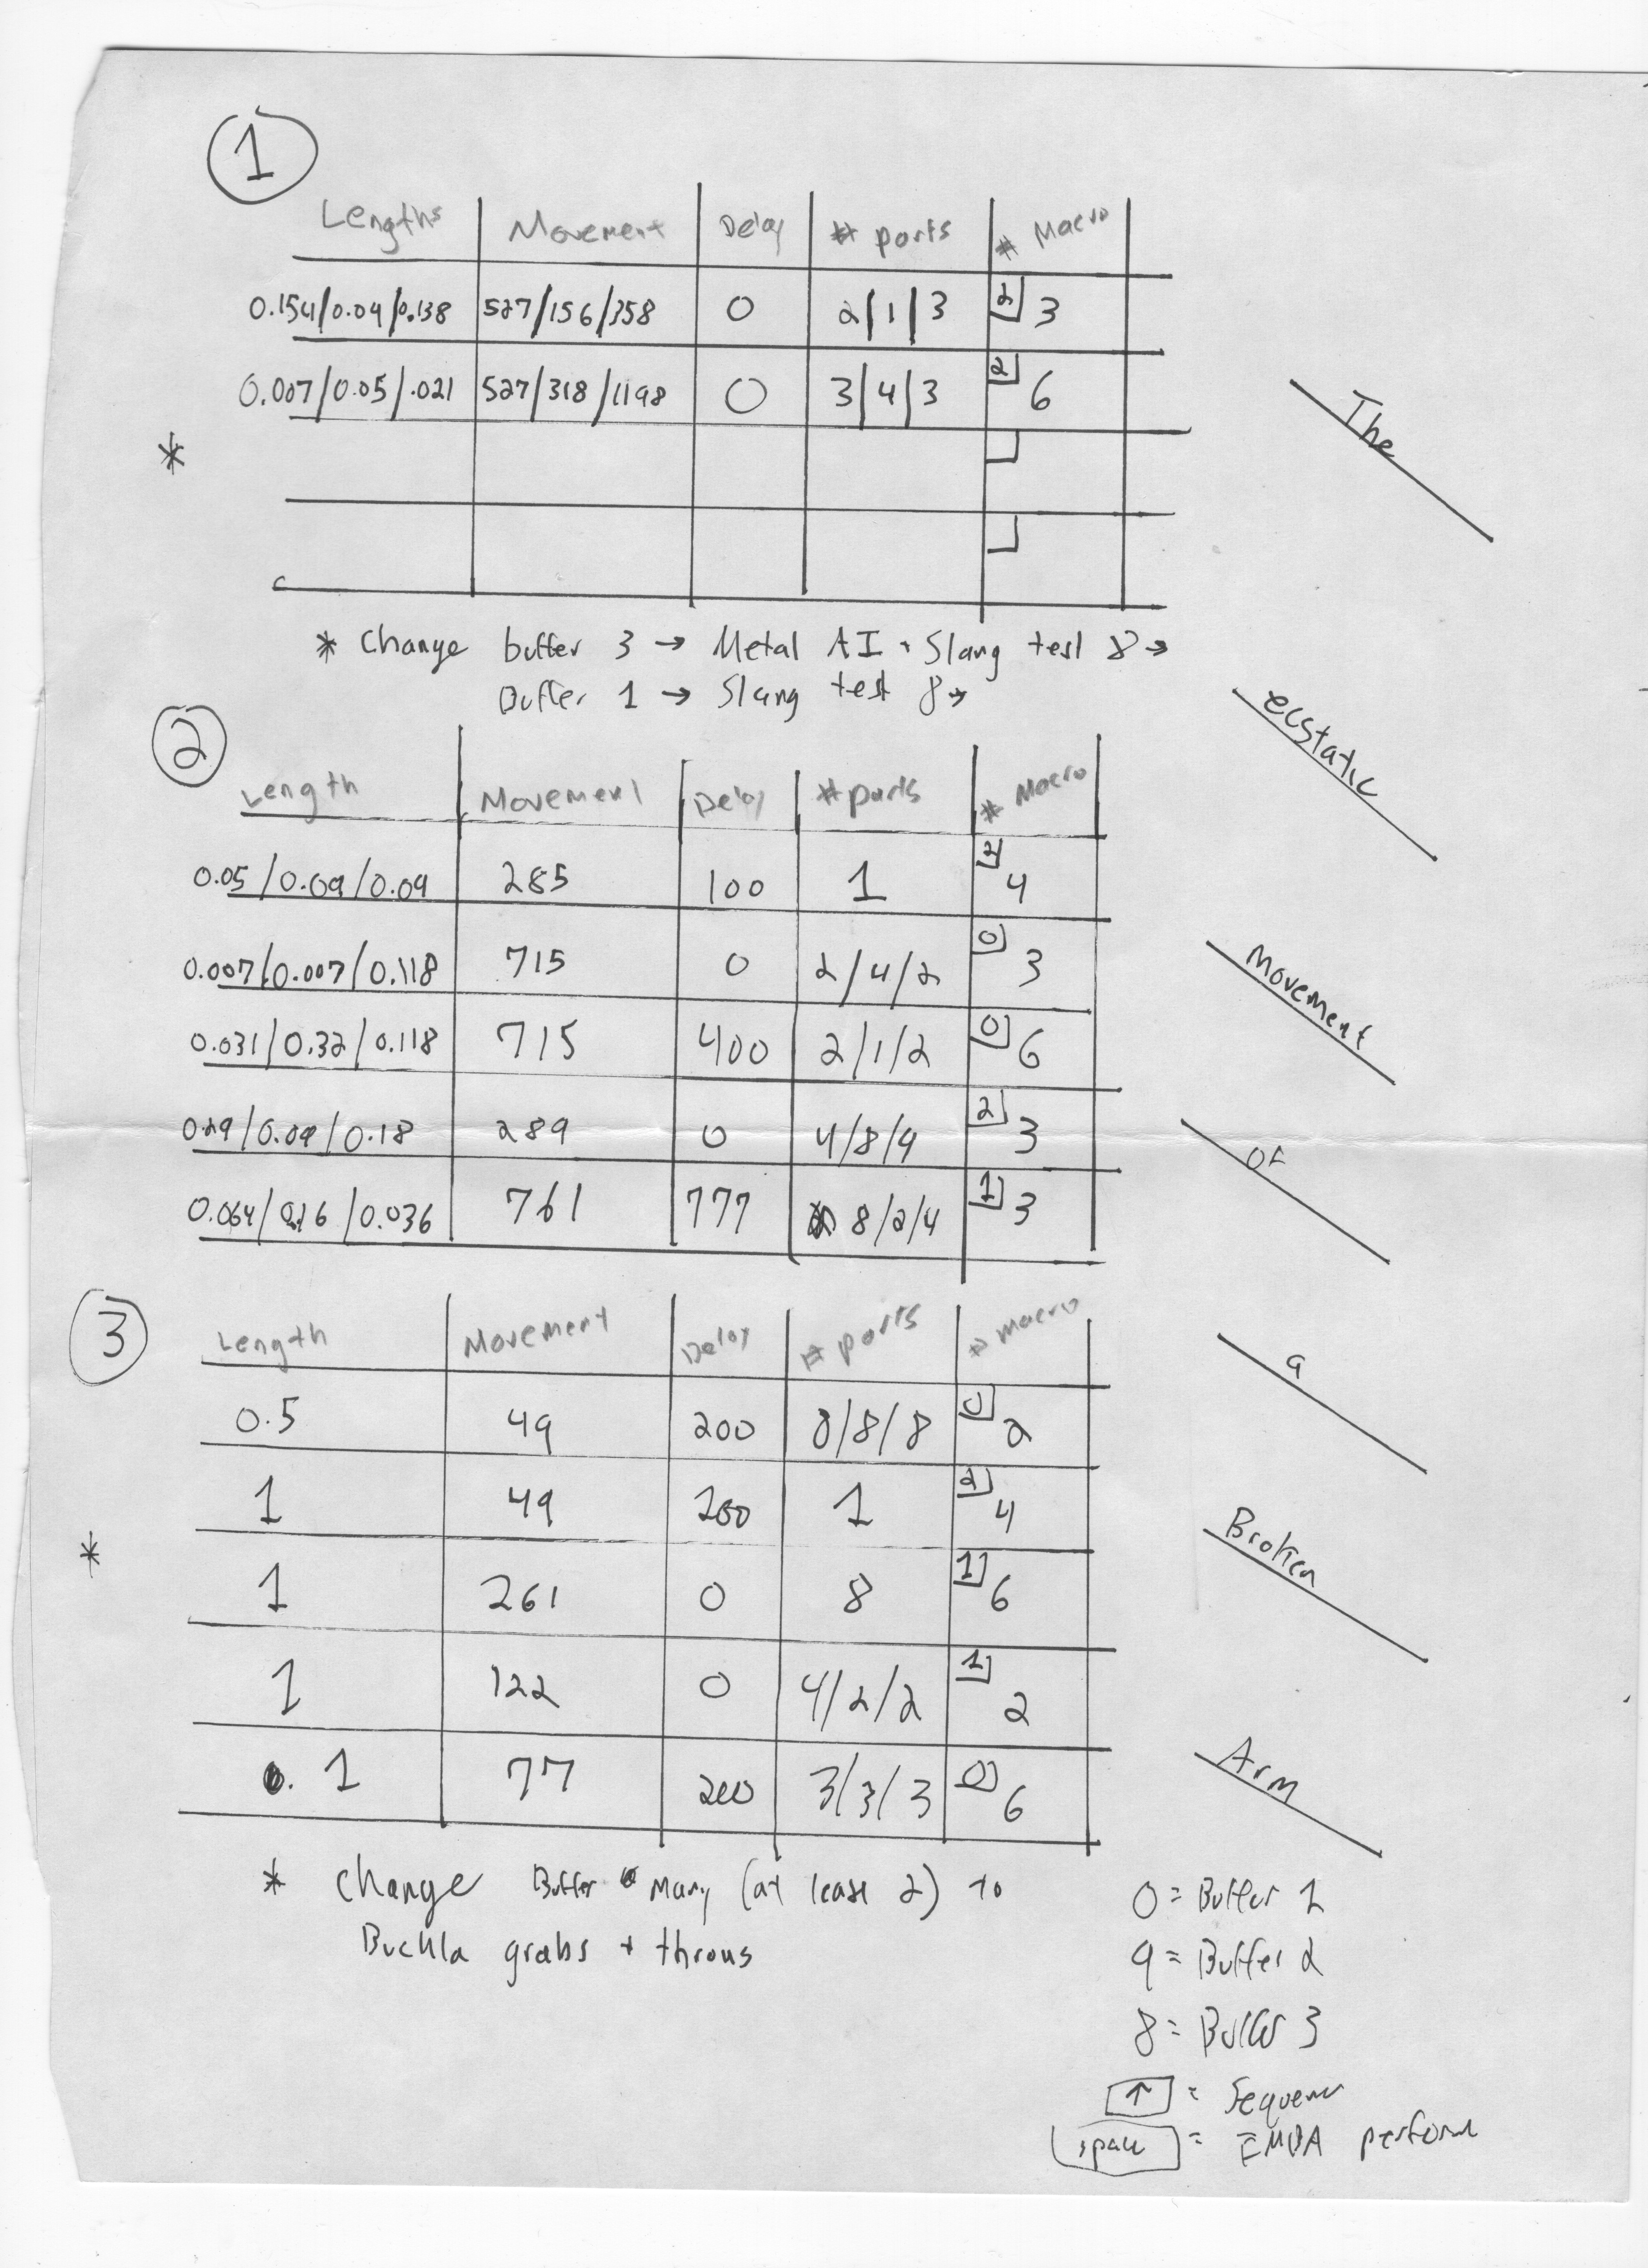 1
Lengths Movement Delay # ports # Macro
0.154/0.04/0.138 527/156/358 0 2/1/3 2 3
0.007/0.05/.021 527/318/1198 0 3/4/3 2 6
The
*
* Change buffer 3 → Metal AI + Slang test 8 →
Buffer 1 → Slang test 8 →
ecstatic
2
Length Movement Delay # ports # Macro
0.05/0.09/0.09 285 100 1 2 4
0.007/0.007/0.118 715 0 2/4/2 0 3
Movement
0.031/0.32/0.118 715 400 2/1/2 0 6
0.29/0.09/0.18 289 0 4/8/9 2 3
of
0.064/0.16/0.036 761 777 8/2/4 1 3
3
Length Movement Delay # ports # macro
a
0.5 49 200 8/8/8 0 2
1 49 200 1 2 4
Broken
*
1 261 0 8 1 6
1 122 0 4/2/2 1 2
0.1 77 200 3/3/3 0 6
Arm
* Change Buffer Many (at least 2) to
Buchla grabs + throws
0 = Buffer 1
9 = Buffer 2
8 = Buffer 3
↑ = Sequence
space = perform